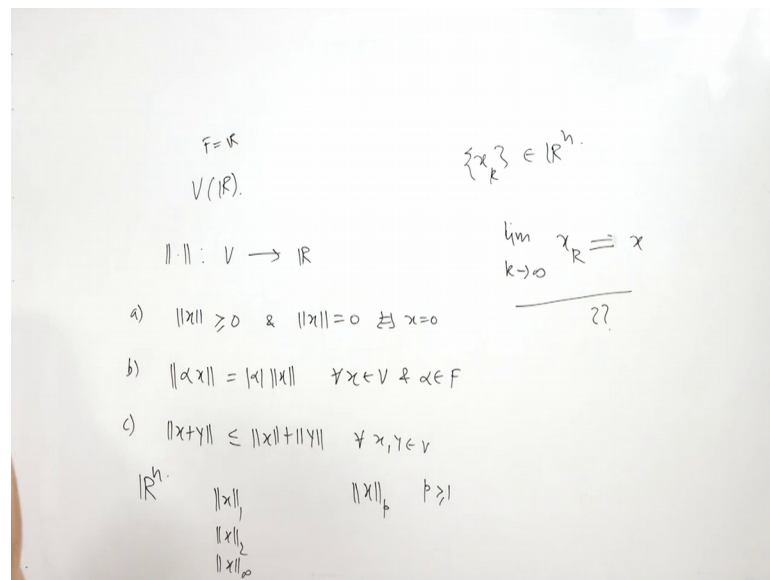 F = ℝ
V(ℝ).
‖·‖ : V → ℝ
a) ‖x‖ ≥ 0 & ‖x‖ = 0 ⇔ x = 0
b) ‖αx‖ = |α| ‖x‖ ∀ x ∈ V & α ∈ F
c) ‖x+y‖ ≤ ‖x‖ + ‖y‖ ∀ x, y ∈ V
ℝⁿ.
‖x‖₁
‖x‖₂
‖x‖∞
‖x‖ₚ p ≥ 1
{xₖ} ∈ ℝⁿ.
lim xₖ = x
k→∞
??